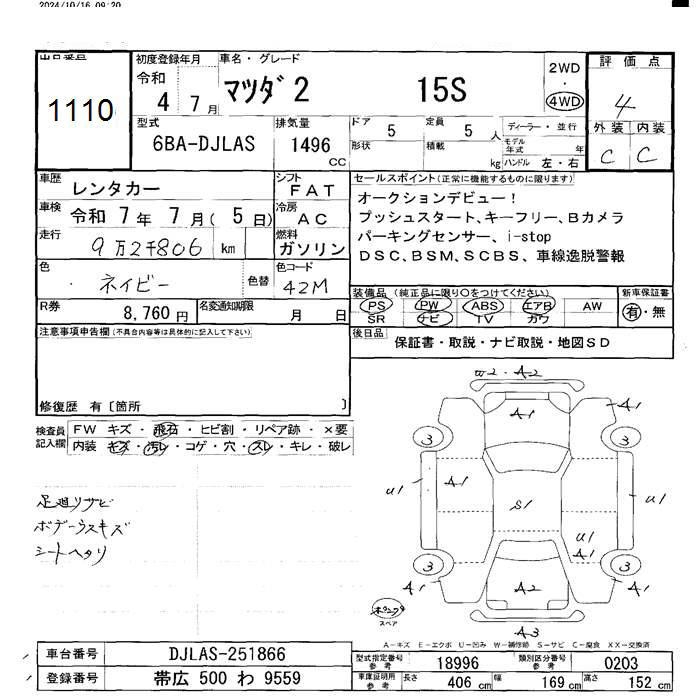 2024/10/16 09:20
出品番号
1110
初度登録年月
令和
4 年 7 月
車名・グレード
マツダ2 15S
2WD
・
4WD
評価点
4
外装 内装
C C
型式
6BA-DJLAS
排気量
1496
CC
ドア
5
定員
5 人
形状
積載
kg
ディーラー・並行
モデル年式 年
ハンドル 左・右
車歴
レンタカー
車検
令和 7 年 7 月 ( 5 日)
走行
9万2千806 km
シフト
FAT
冷房
AC
燃料
ガソリン
色
ネイビー
色替
色コード
42M
R券
8,760 円
名変通知期限
月 日
セールスポイント(正常に機能するものに限ります)
オークションデビュー!
プッシュスタート、キーフリー、Bカメラ
パーキングセンサー、i-stop
DSC、BSM、SCBS、車線逸脱警報
装備品 (純正品に限り○をつけてください)
PS PW ABS エアB AW
SR ナビ TV カワ
新車保証書
有・無
後日品
保証書・取説・ナビ取説・地図SD
注意事項申告欄(不具合内容等は具体的に記入して下さい)
修復歴 有〔箇所 〕
検査員記入欄
FW キズ・飛石・ヒビ割・リペア跡・×要
内装 キズ・汚レ・コゲ・穴・スレ・キレ・破レ
足廻りサビ
ボデーウスキズ
シートヘタリ
W2・A2
A1
A1
3
3
U1
A1
S1
U1
U1
A1
3
3
A1
A2
A1
A3
スペア
A-キズ E-エクボ U-凹み W-補修跡 S-サビ C-腐食 XX-交換済
車台番号
DJLAS-251866
登録番号
帯広 500 わ 9559
型式指定番号
参考
18996
類別区分番号
参考
0203
車庫証明用
参考
長さ 406 cm 幅 169 cm 高さ 152 cm